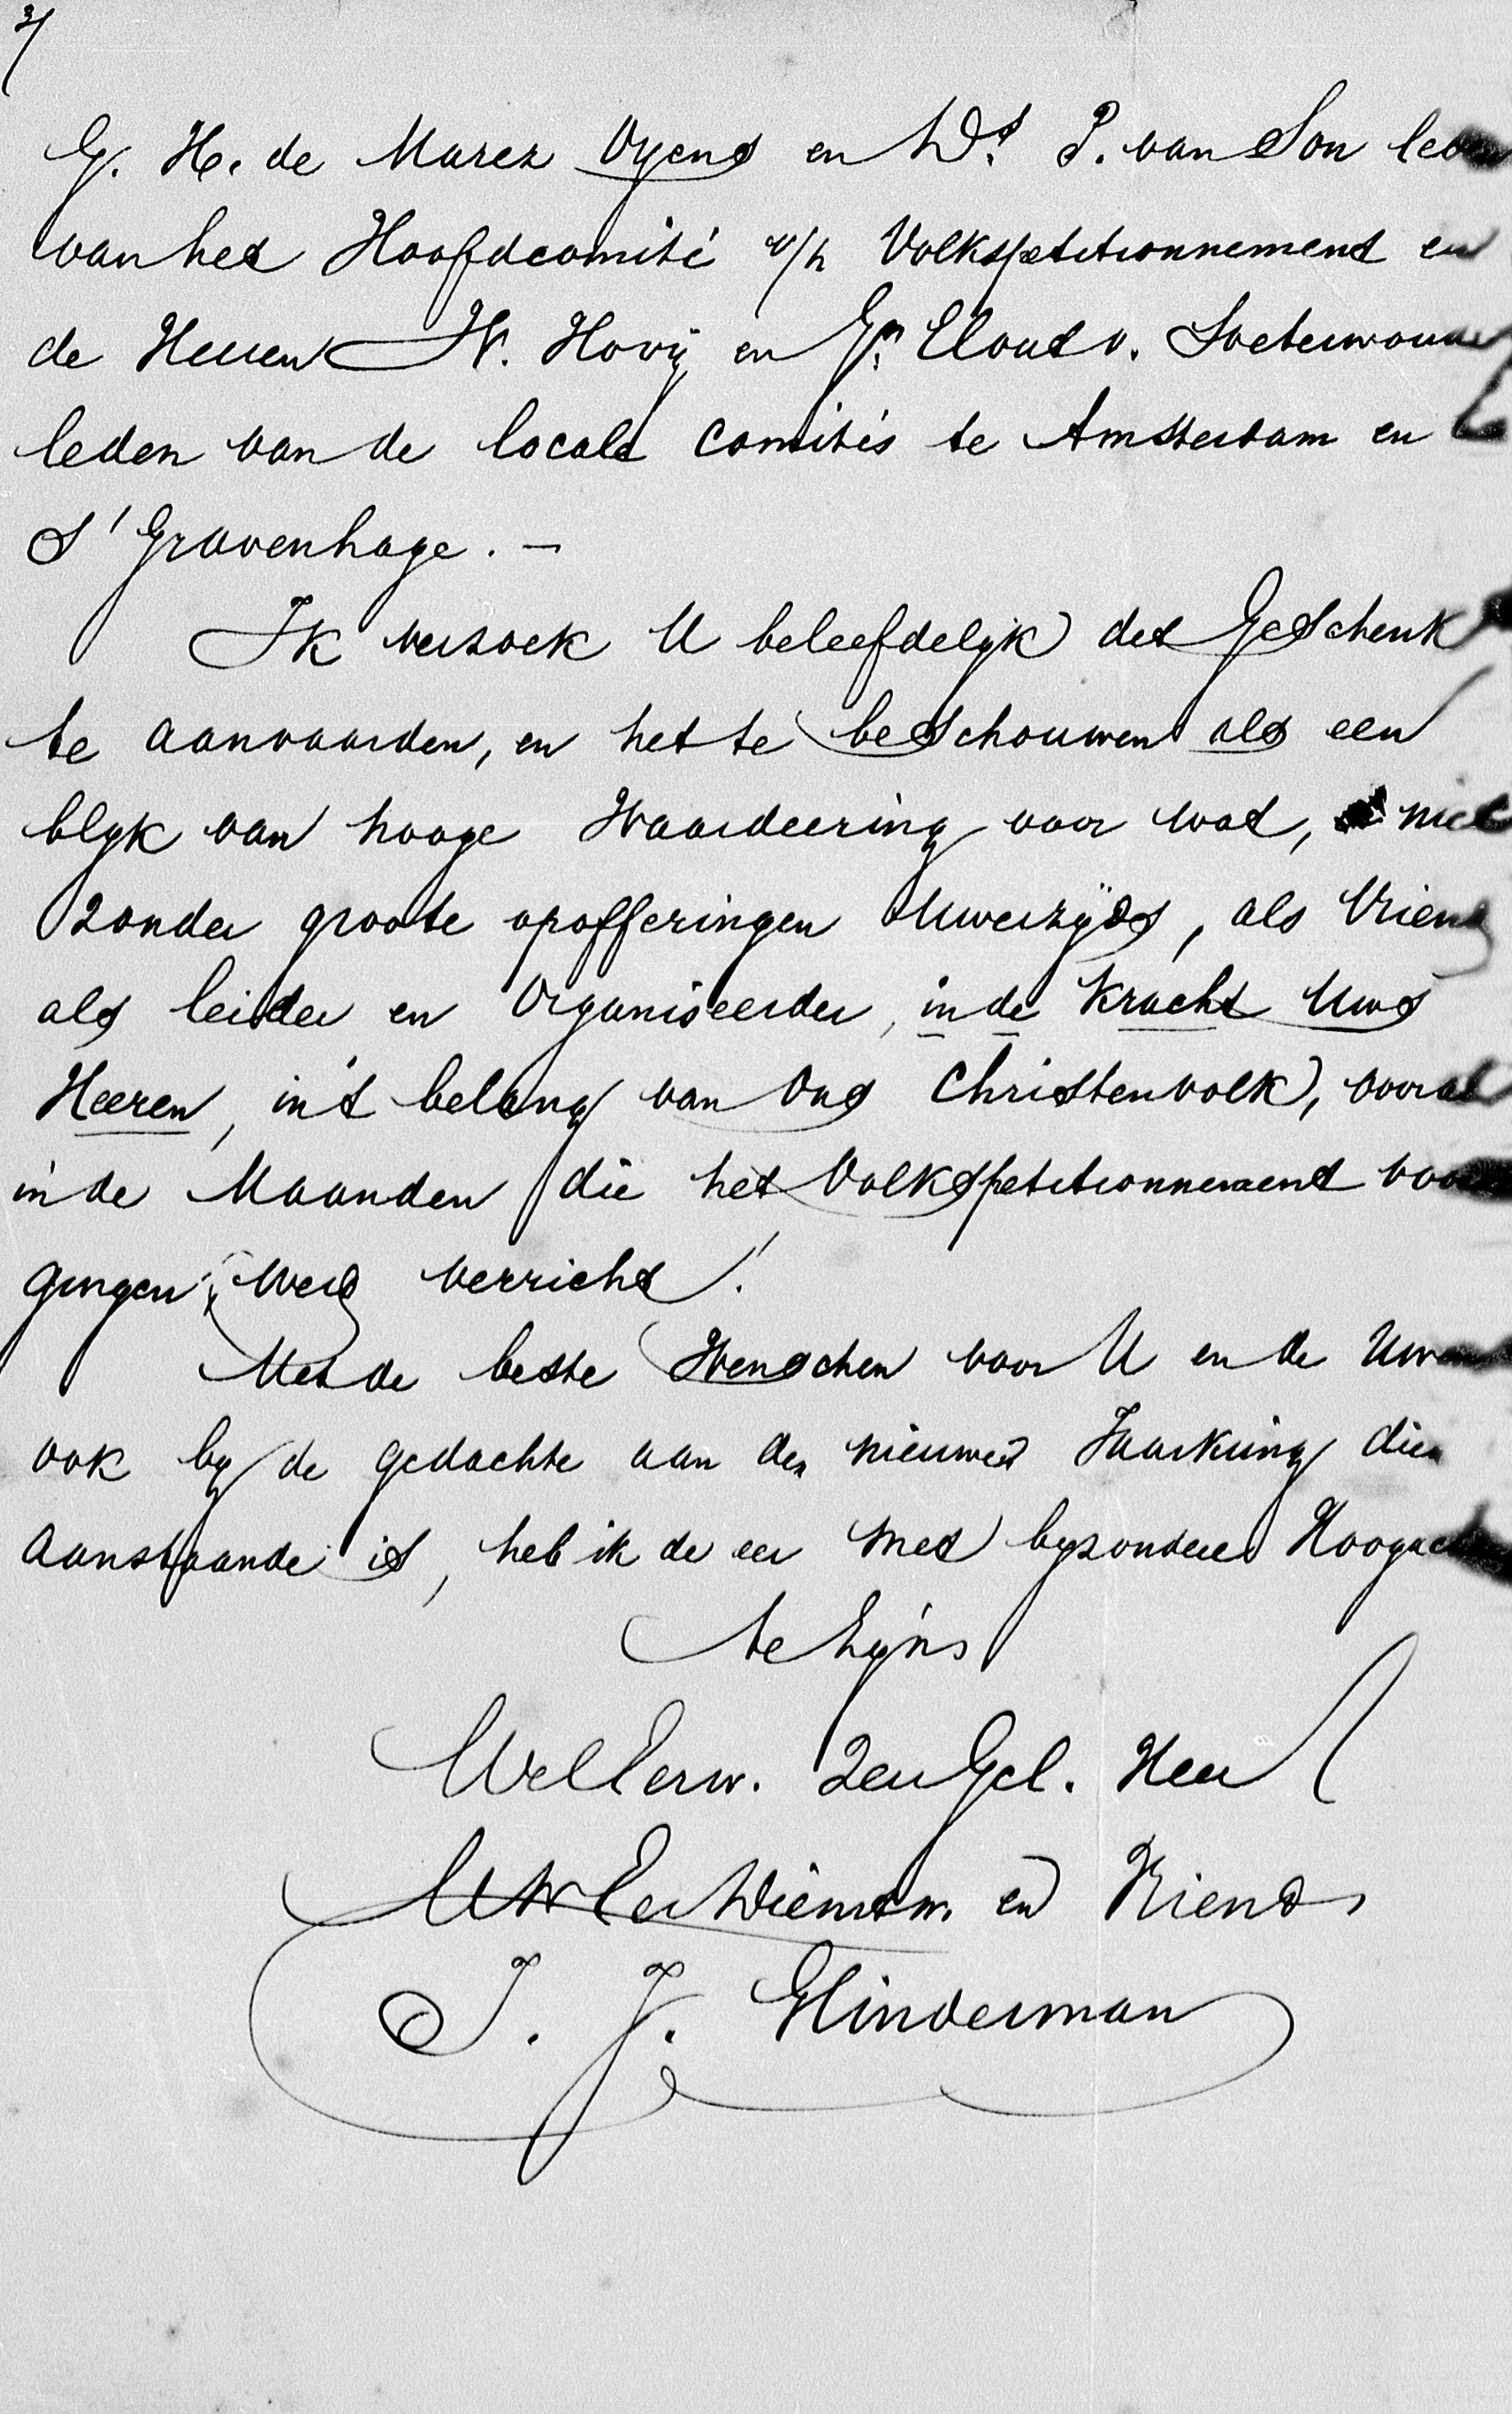 3/
G. H. de Marez Oyens en Ds. P. van Son leden
van het Hoofdcomité v/h Volkspetitionnement en
de Heeren W. Hovÿ en Jr. Elout v. Soeterwoude
leden van de locale comités te Amsterdam en
S'Gravenhage. —
Ik verzoek U beleefdelyk det Geschenk
te aanvaarden, en het te beschouwen als een
blyk van hooge Waardeering voor wat, niet
zonder groote opofferingen Uwerzÿds, als Vriend
als leider en Organiseerder, in de Kracht Uws
Heeren, in't belang van Ons Christenvolk, vooral
in de Maanden die het Volkspetitionnement voor
gingen, werd verricht!
Met de beste Wenschen voor U en de Uwen
ook by de gedachte aan den nieuwen Jaarkring die
aanstaande is, heb ik de eer met byzondere Hoogacht
te zyn
WelEerw. ZeerGel. Heer
UWEer Dienstw. en Vriend
J. J. Glinderman